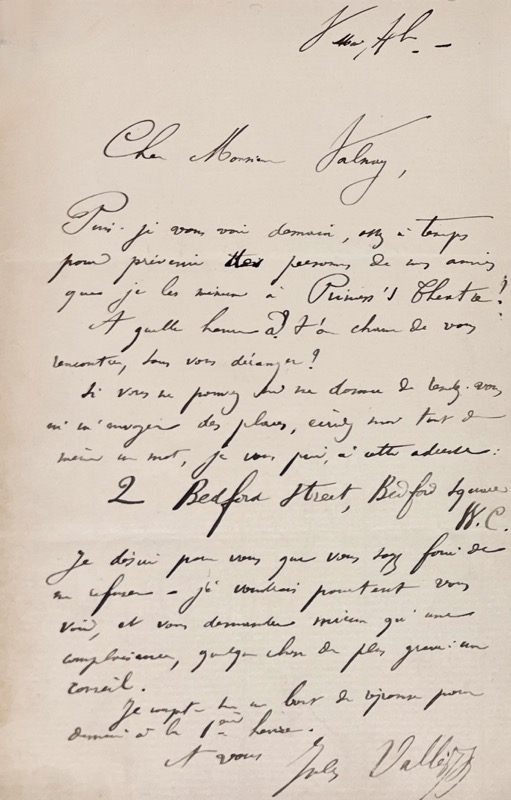 Cher Monsieur Valnay,
Puis-je vous voir demain, assez à temps
pour prévenir des personnes de mes amies
que je les mènerai à Princess's Theatre?
A quelle heure a-t-on chance de vous
rencontrer, sans vous déranger?
Si vous ne pouvez me donner de rendez-vous
ni m'envoyer des places, écrivez moi tout de
même un mot, je vous prie, à cette adresse:
2 Bedford Street, Bedford Square
W.C.
Je désire pour vous que vous soyez forcé de
me refuser - je voudrais pourtant vous
voir, et vous demander mieux qu'une
complaisance, quelque chose de plus grave: un
conseil.
Je compte sur un bout de réponse pour
demain à la 1ère heure.
A vous Jules Vallès